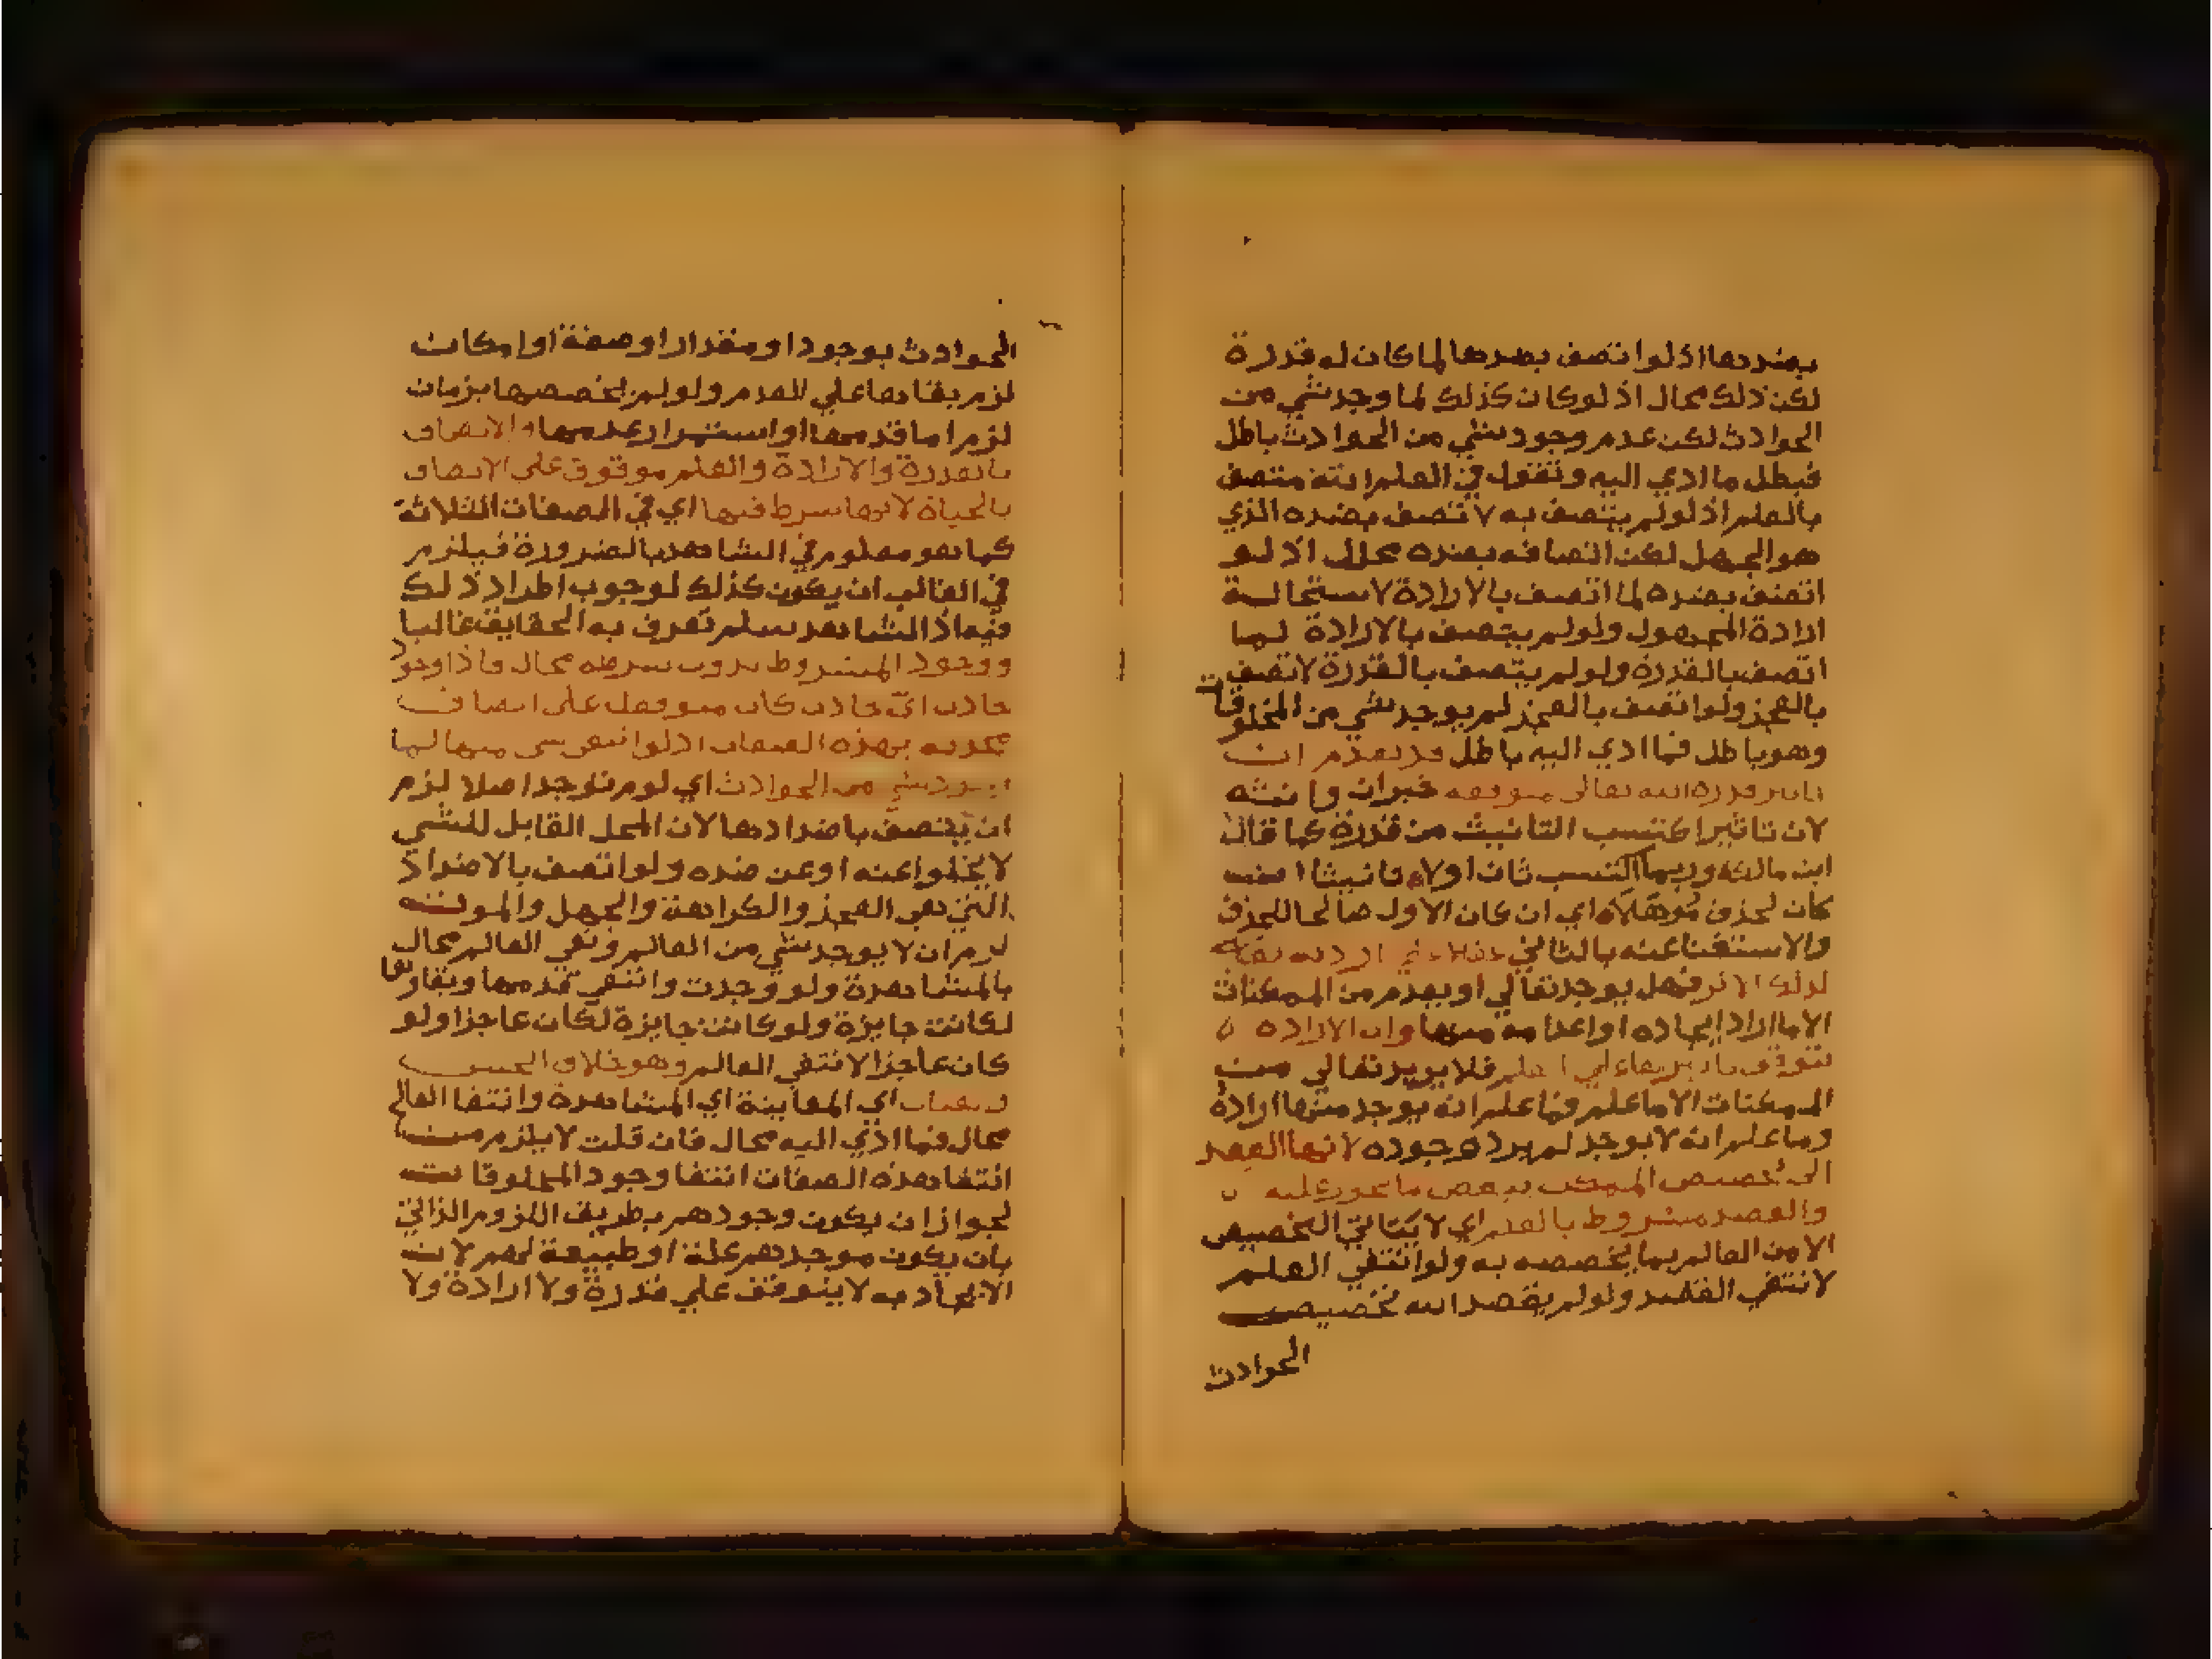 بضدها اذ لو اتصف بضدها لما كان له قدرة
لكن ذلك محال اذ لو كان كذلك لما وجد شي من
الحوادث لكن عدم وجود شي من الحوادث باطل
فبطل ما ادي اليه ونقول في العلم انه متصف
بالعلم اذ لو لم يتصف به لا تصف بضده الذي
هو الجهل لكن اتصافه بضده محال اذ لو
اتصف بضده لما اتصف بالارادة لاستحالة
ارادة المجهول ولو لم يتصف بالارادة لما
اتصف بالقدرة ولو لم يتصف بالقدرة لاتصف
بالعجز ولو اتصف بالعجز لم يوجد شي من المخلوقات
وهو باطل فما ادي اليه باطل قد تقدم ان
تاثير قدرة الله تعالى متوقفه خبران وانثه
لان تاثيرا كتسب التانيث من قدرة كما قال
ابن مالك وربما اكتسب ثان اولا تانيثا ان
كان لحذف موهلا اي ان كان الاول صالحا للحذف
والاستغنا عنه بالثاني على ارادته تعالى
لذلك الاثر فهل يوجد تعالي او يعدم من الممكنات
الا ما اراد ايجاده او اعدامه منها وان الاراده
تتوقف تاثيرها علي العلم فلا يريد تعالي من
الممكنات الا ما علم فما علم انه يوجد منها اراده
وما علم انه لا يوجد لم يرد وجوده لانها القصد
الى تخصيص الممكن ببعض ما يجوز عليه
والقصد مشروط بالعلم اي لا يتاتي التخصيص
الا من العالم بما يخصصه به ولو انتفي العلم
لانتفي القصد ولو لم يقصد الله تخصيص
الحوادث
الحوادث بوجود او مقدار او صفة او امكان
لزم بقاءها علي العدم ولو لم يخصصها بزمان
لزم اما قدمها او استمرار عدمها والاتصاف
بالقدرة والارادة والعلم موقوف على الاتصاف
بالحياة لانها شرط فيها اي في الصفات الثلاثة
كما هو معلوم في الشاهد بالضرورة فيلزم
في الغائب ان يكون كذلك لوجوب اطراد ذلك
فيه اذ الشاهد سلم تعرف به الحقايق غالبا
ووجود المشروط بدون شرطه محال فاذا وجود
حادث اي حادث كان متوقف على اتصاف
محدثه بهذه الصفات اذ لو انتفى شي منها لما
وجد شي من الحوادث اي لو لم توجد اصلا لزم
ان يتصف باضدادها لان المحل القابل للشي
لا يخلوا عنه او عن ضده ولو اتصف بالاضداد
التي هي العجز والكراهة والجهل والموت
لزم ان لا يوجد شي من العالم ونفي العالم محال
بالمشاهدة ولو وجدت وانتفي قدمها وبقاوها
لكانت جايزة ولو كانت جايزة لكان عاجزا ولو
كان عاجزا لانتفي العالم وهو خلاف الحس
والعيان اي المعاينة اي المشاهدة وانتفا العالم
محال فما ادي اليه محال فان قلت لا يلزم من
انتفا هذه الصفات انتفا وجود المخلوقات
لجواز ان يكون وجودهم بطريق اللزوم الذاتي
بان يكون موجدهم علة او طبيعة لهم لان
الايجاد به لا يتوقف علي قدرة ولا ارادة ولا